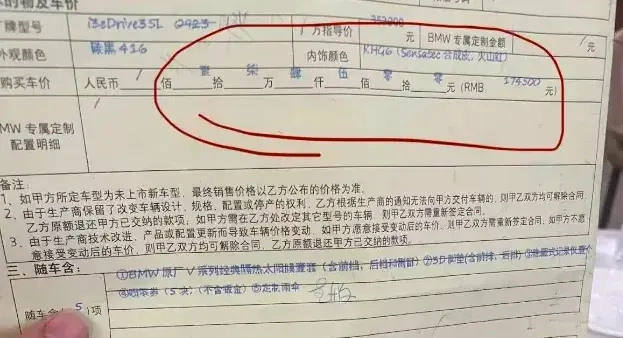 的物及车价
牌型号 i3eDrive35L 0923 厂方指导价 353900 元 BMW 专属定制金额 / 元
外观颜色 碳黑 416 内饰颜色 KHG6 (Sensatec 合成皮, 火山红)
购买车价 人民币 / 佰 壹 拾 柒 万 肆 仟 伍 佰 零 拾 零 元 (RMB: 174500 元)
MW 专属定制 /
配置明细
备注:
1、如甲方所定车型为未上市新车型,最终销售价格以乙方公布的价格为准。
2、由于生产商保留了改变车辆设计、规格、配置或停产的权利,乙方根据生产商的通知无法向甲方交付车辆的,则甲乙双方均可解除合同,
乙方原额退还甲方已交纳的款项;如甲方需在乙方处改定其它型号的车辆,则甲乙双方需重新签定合同。
3、由于生产商技术改进、产品或配置更新而导致车辆价格变动,如甲方愿意接受变动后的车价,则甲乙双方需重新签定合同,如甲方不愿
意接受变动后的车价,则甲乙双方均可解除合同,乙方原额退还甲方已交纳的款项。
三、随车含:
①BMW 原厂 V 系列经典隔热太阳膜壹套(含前档,后档和侧窗)②3D脚垫(含前排、后排)③隐藏式记录仪壹个
随车含( 5 )项 (5次)(不含钣金)⑤定制雨伞